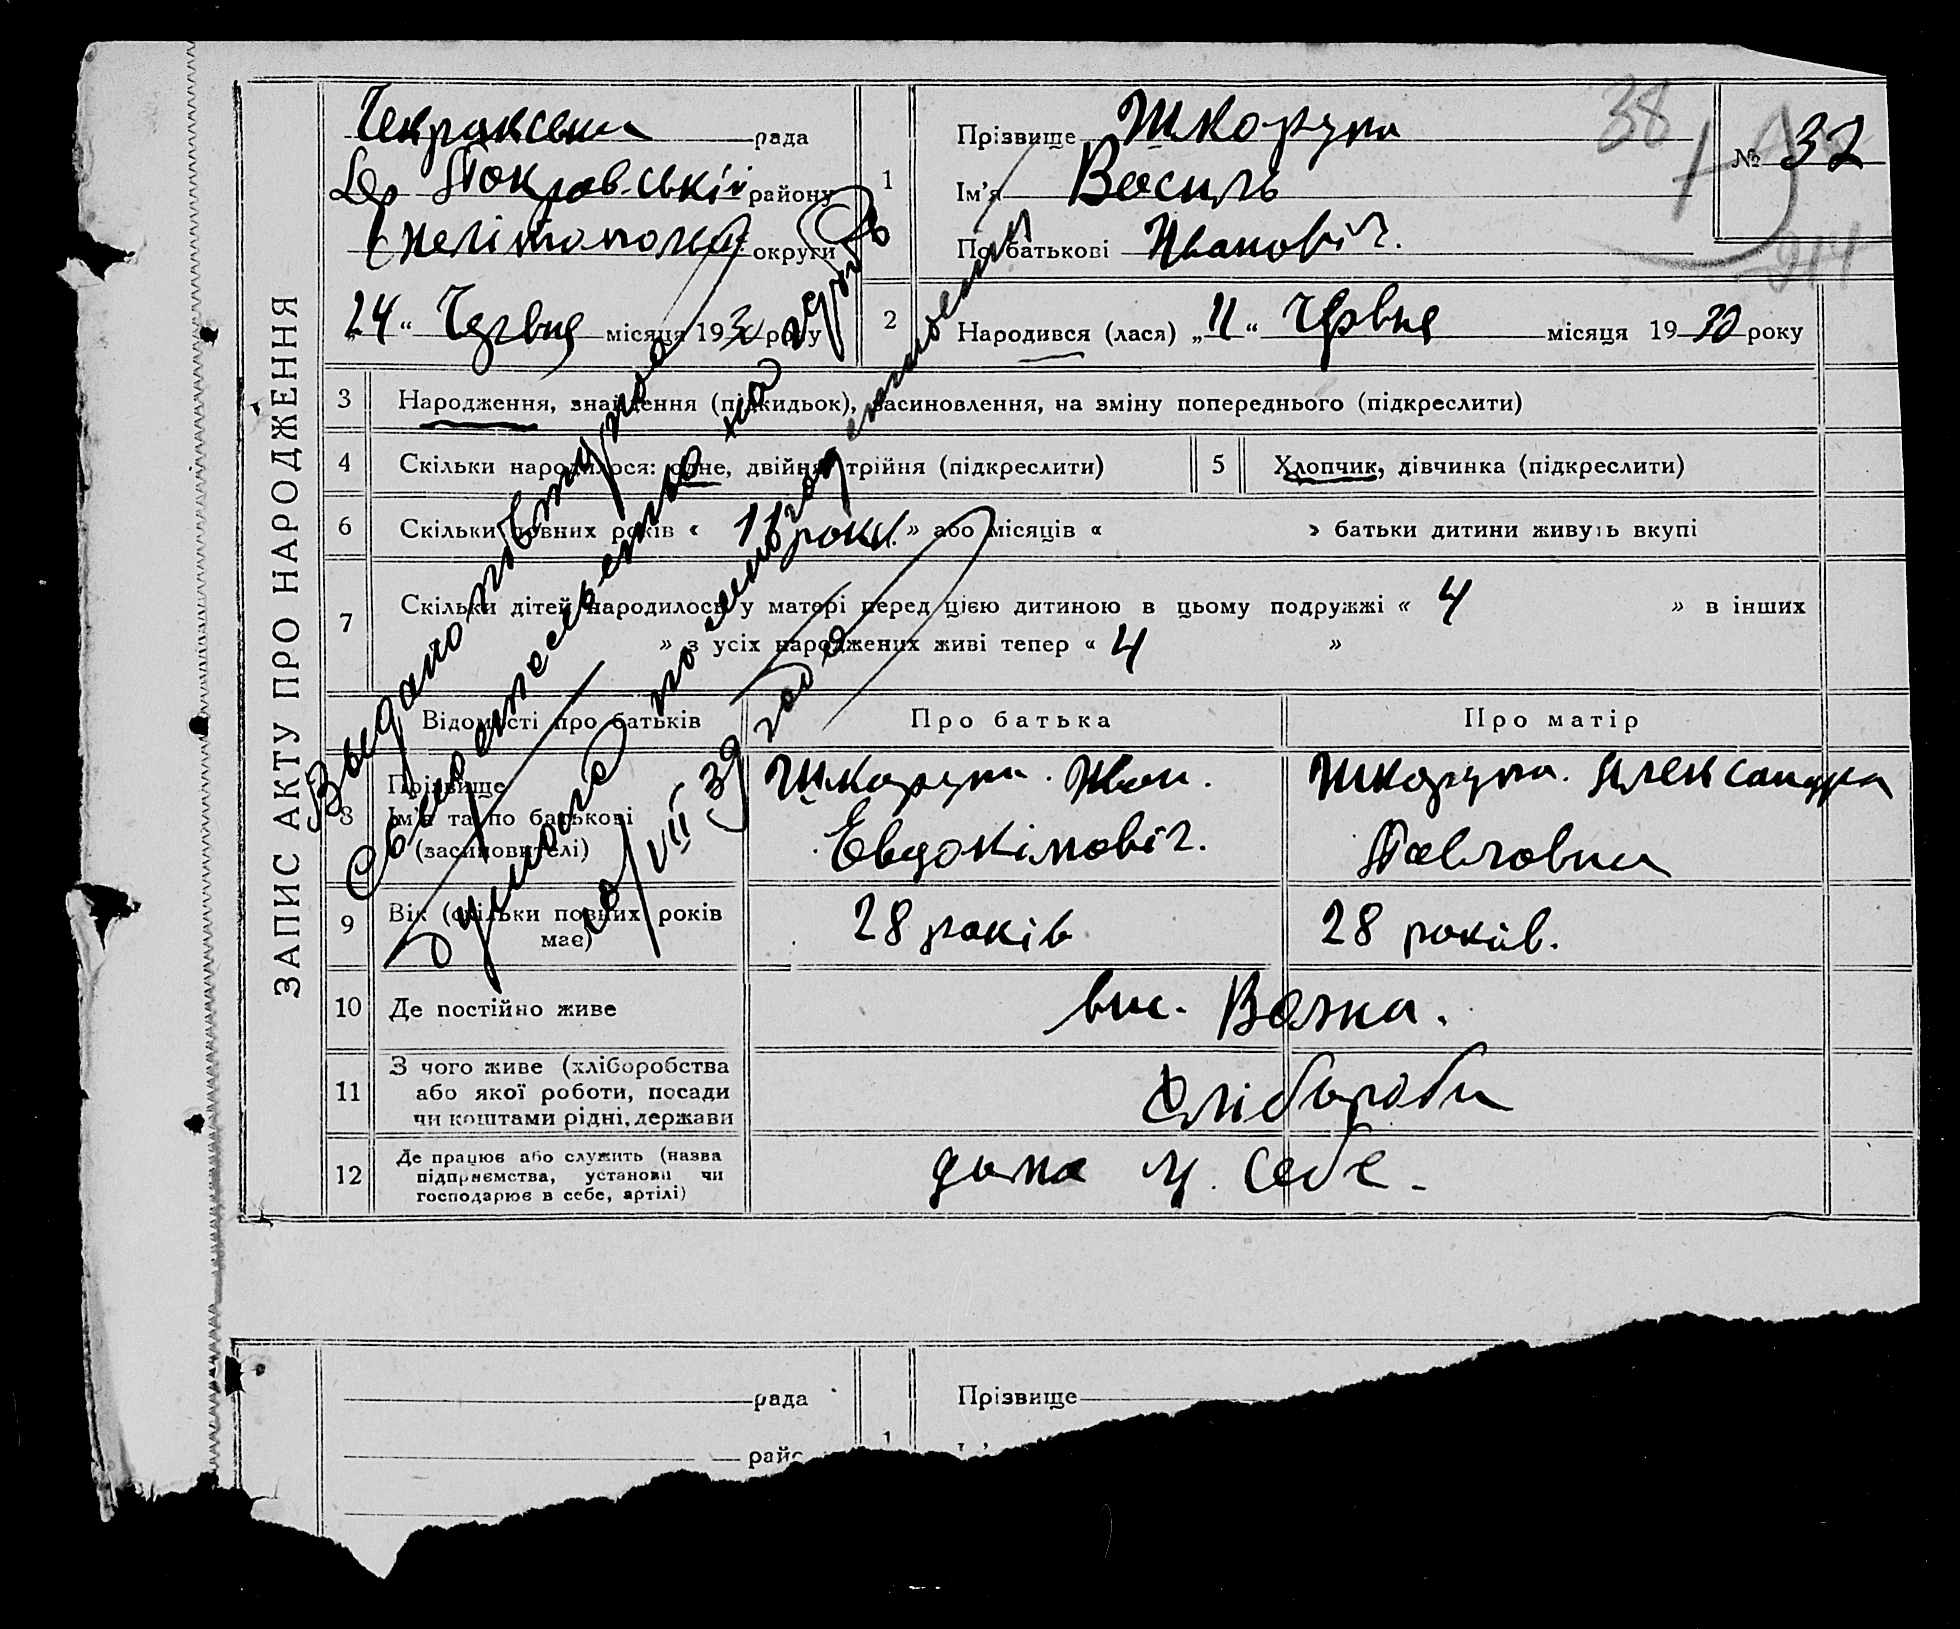 ЗАПИС АКТУ ПРО НАРОДЖЕННЯ
Чекракська рада
Покровській району
Мелітополь округи
„24“ Червня місяця 1932 року
1
Прізвище Шкорупа
Ім'я Василь
По батькові Иванові ч.
№ 32
38
2
Народився (лася) „11“ Червня місяця 1932 року
3
Народження, знайдення (підкидьок), засиновлення, на зміну попереднього (підкреслити)
4
Скільки народилося: одне, двійня, трійня (підкреслити)
5
Хлопчик, дівчинка (підкреслити)
6
Скільки повних років « 11 роки. » або місяців « » батьки дитини живуть вкупі
7
Скільки дітей народилось у матері перед цією дитиною в цьому подружжі « 4 » в інших
» з усіх народжених живі тепер « 4 »
Відомості про батьків
Про батька
Про матір
8
Прізвище
Ім'я та по батькові
(засиновителі)
Шкорупа. Иван.
Евдокімовіч.
Шкорупа. Александра
Павловна
9
Вік (скільки повних років
має)
28 років
28 років.
10
Де постійно живе
вис. Волна.
11
З чого живе (хліборобства
або якої роботи, посади
чи коштами рідні, держави
Хлібороби
12
Де працює або служить (назва
підприємства, установи чи
господарює в себе, артілі)
дома у. себе.
Выдано повторное
свидетельство на
10/VII 39 года
рада
1
Прізвище